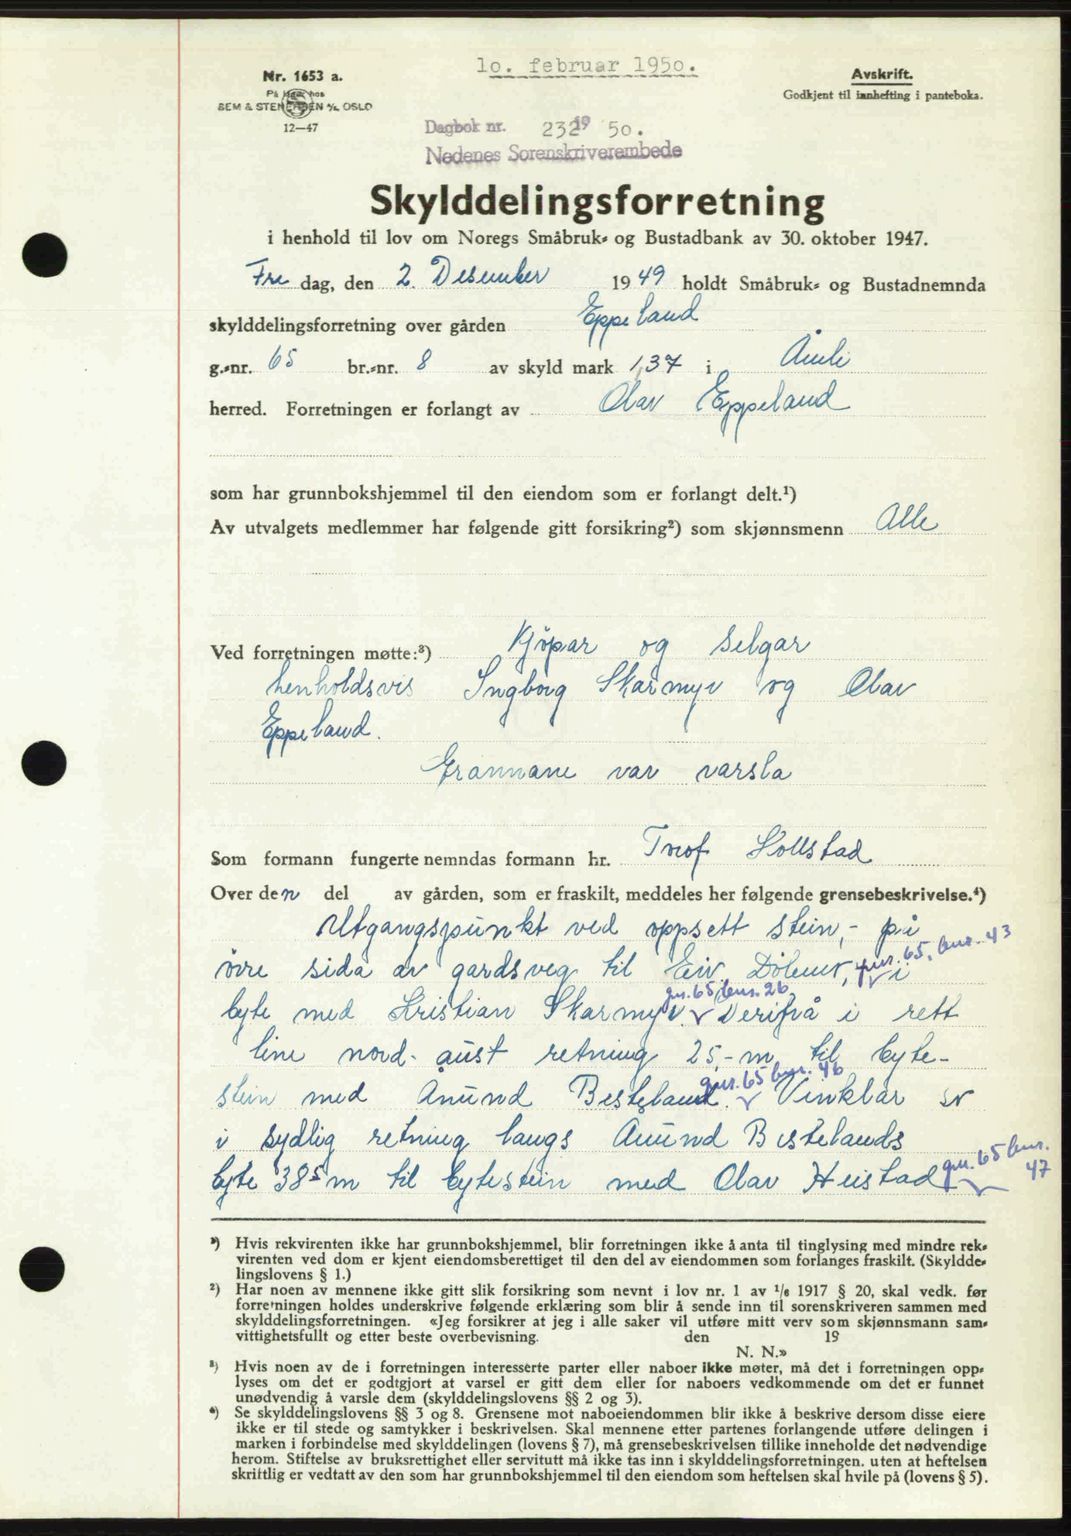 10. februar 1950.
Nr. 1653 a.
På lager hos
SEM & STENERSEN A/S, OSLO
12—47
Avskrift.
Godkjent til innhefting i panteboka.
Dagbok nr. 232 19 50.
Nedenes Sorenskriverembede
Skylddelingsforretning
i henhold til lov om Noregs Småbruk- og Bustadbank av 30. oktober 1947.
Fre dag, den 2. Desember 1949 holdt Småbruk- og Bustadnemnda
skylddelingsforretning over gården Eppeland
g.-nr. 65 br.-nr. 8 av skyld mark 1,37 i Åmli
herred. Forretningen er forlangt av Olav Eppeland
som har grunnbokshjemmel til den eiendom som er forlangt delt.¹)
Av utvalgets medlemmer har følgende gitt forsikring²) som skjønnsmenn Alle
Ved forretningen møtte:³) Kjöpar og Selgar
henholdsvis Ingborg Skarmyr og Olav
Eppeland.
Grannane var varsla
Som formann fungerte nemndas formann hr. Hollstad
Over den del av gården, som er fraskilt, meddeles her følgende grensebeskrivelse.⁴)
Utgangspunkt ved oppsett stein,- på
övre sida av gardsveg til Eiv. Dölemo, gnr. 65, bnr. 43 i
byte med Kristian Skarmyr. gnr. 65 bnr. 26 Derifrå i rett
line nord-aust retning 25,- m til byte-
stein med Ånund Besteland. gnr. 65 bnr. 46 Vinklar so
i sydlig retning langs Ånund Bestelands
byte 385 m til bytestein med Olav Heistad gnr. 65 bnr. 47
¹) Hvis rekvirenten ikke har grunnbokshjemmel, blir forretningen ikke å anta til tinglysing med mindre rek-
virenten ved dom er kjent eiendomsberettiget til den del av eiendommen som forlanges fraskilt. (Skyldde-
lingslovens § 1.)
²) Har noen av mennene ikke gitt slik forsikring som nevnt i lov nr. 1 av 1/6 1917 § 20, skal vedk. før
forretningen holdes underskrive følgende erklæring som blir å sende inn til sorenskriveren sammen med
skylddelingsforretningen. «Jeg forsikrer at jeg i alle saker vil utføre mitt verv som skjønnsmann sam-
vittighetsfullt og etter beste overbevisning. den 19
N. N.»
³) Hvis noen av de i forretningen interesserte parter eller naboer ikke møter, må det i forretningen opp-
lyses om det er godtgjort at varsel er gitt dem eller for naboers vedkommende om det er funnet
unødvendig å varsle dem (skylddelingslovens §§ 2 og 3).
⁴) Se skylddelingslovens §§ 3 og 8. Grensene mot naboeiendommen blir ikke å beskrive dersom disse eiere
ikke er til stede og samtykker i beskrivelsen. Skal mennene etter partenes forlangende utføre delingen i
marken i forbindelse med skylddelingen (lovens § 7), må grensebeskrivelsen tillike inneholde det nødvendige
herom. Stiftelse av bruksrettighet eller servitutt må ikke tas inn i skylddelingsforretningen. uten at heftelsen
skriftlig er vedtatt av den som har grunnbokshjemmel til den eiendom som heftelsen skal hvile på (lovens § 5).